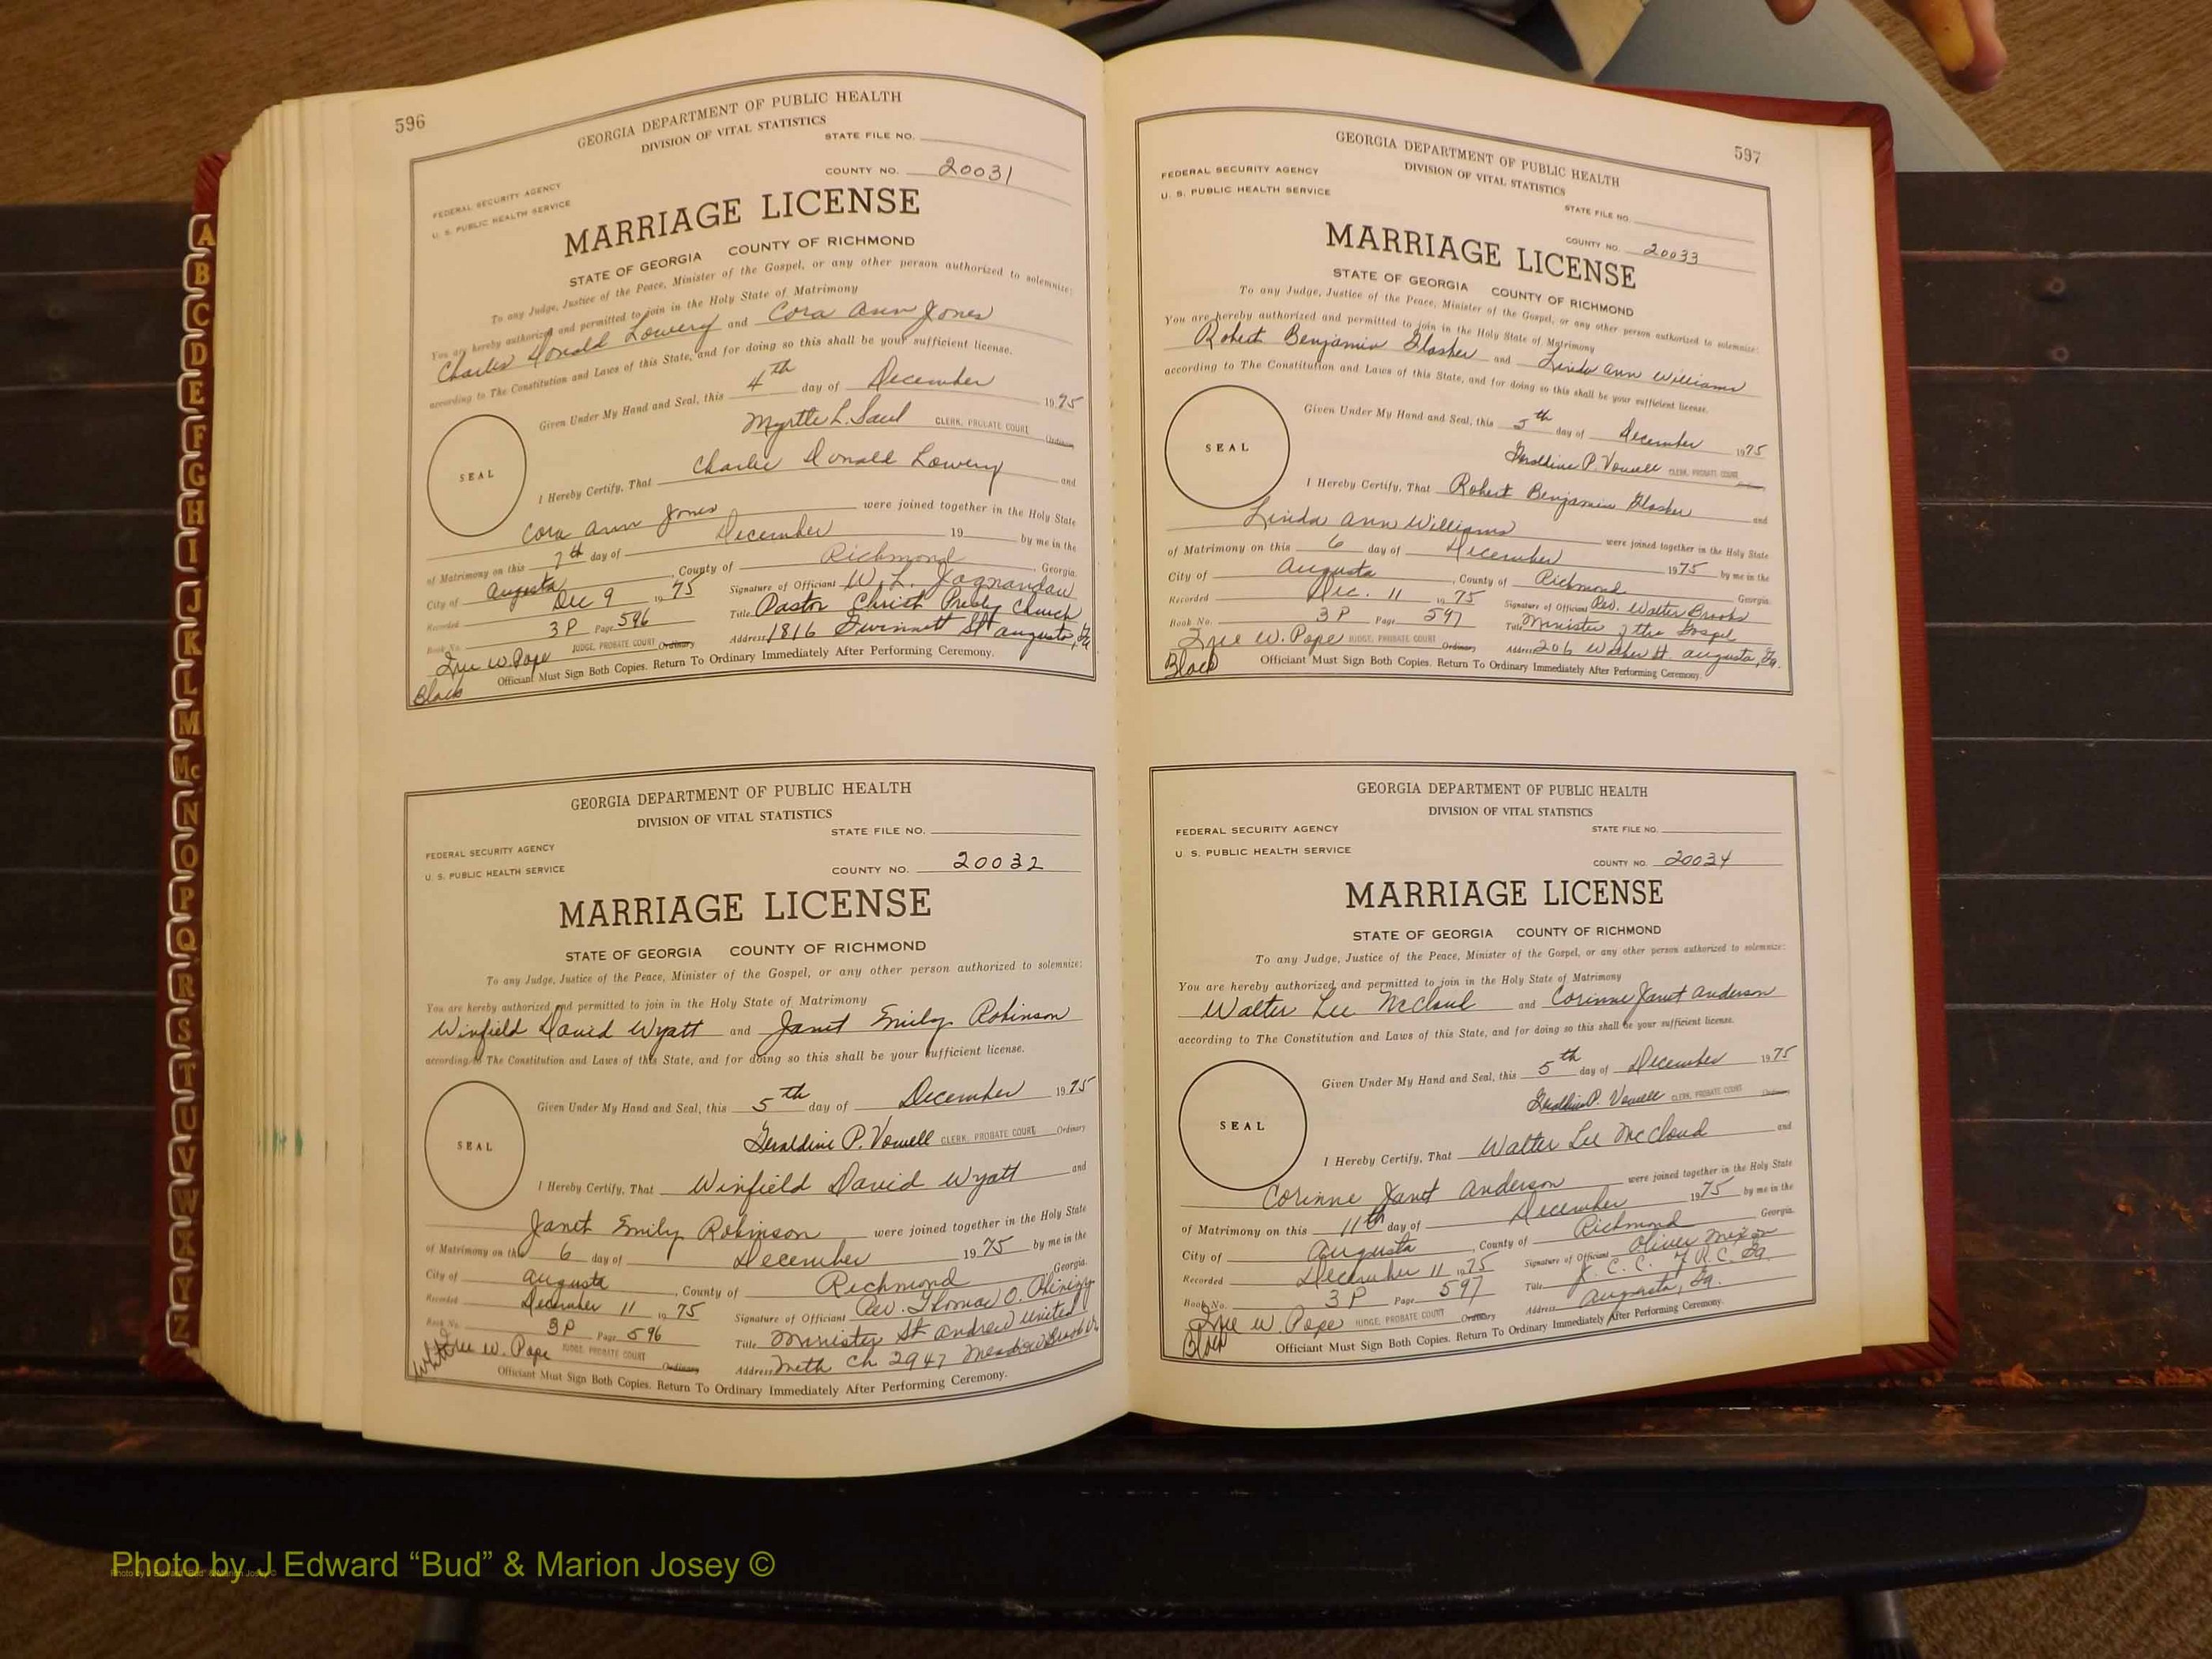 596
GEORGIA DEPARTMENT OF PUBLIC HEALTH
DIVISION OF VITAL STATISTICS
STATE FILE NO.
COUNTY NO. 20031
FEDERAL SECURITY AGENCY
U. S. PUBLIC HEALTH SERVICE
MARRIAGE LICENSE
STATE OF GEORGIA COUNTY OF RICHMOND
To any Judge, Justice of the Peace, Minister of the Gospel, or any other person authorized to solemnize:
You are hereby authorized and permitted to join in the Holy State of Matrimony
Charles Donald Lowery and Cora Ann Jones
according to The Constitution and Laws of this State, and for doing so this shall be your sufficient license.
Given Under My Hand and Seal, this 4th day of December 1975
Myrtle L. Saul CLERK, PROBATE COURT Ordinary
SEAL
I Hereby Certify, That Charles Donald Lowery and
Cora Ann Jones were joined together in the Holy State
of Matrimony on this 7th day of December 19 by me in the
City of Augusta, County of Richmond, Georgia.
Recorded Dec 9 1975 Signature of Officiant W. L.
Book No. 3P Page 596 Title Pastor Christ Presby Church
Address 1816 Gwinnett St Augusta, Ga
W. Pope JUDGE, PROBATE COURT Ordinary
Officiant Must Sign Both Copies. Return To Ordinary Immediately After Performing Ceremony.
Black
GEORGIA DEPARTMENT OF PUBLIC HEALTH
DIVISION OF VITAL STATISTICS
STATE FILE NO.
FEDERAL SECURITY AGENCY
U. S. PUBLIC HEALTH SERVICE
COUNTY NO. 20032
MARRIAGE LICENSE
STATE OF GEORGIA COUNTY OF RICHMOND
To any Judge, Justice of the Peace, Minister of the Gospel, or any other person authorized to solemnize:
You are hereby authorized and permitted to join in the Holy State of Matrimony
Winfield David Wyatt and Janet Emily Robinson
according to The Constitution and Laws of this State, and for doing so this shall be your sufficient license.
Given Under My Hand and Seal, this 5th day of December 1975
Geraldine P. Vowell CLERK, PROBATE COURT Ordinary
SEAL
I Hereby Certify, That Winfield David Wyatt and
Janet Emily Robinson were joined together in the Holy State
of Matrimony on this 6 day of December 1975 by me in the
City of Augusta, County of Richmond, Georgia.
Recorded December 11 1975 Signature of Officiant Rev. Thomas O.
Book No. 3P Page 596 Title Minister St Andrew United
W. Pope JUDGE, PROBATE COURT Ordinary Address Meth Ch 2947 Meadowbrook Dr.
White
Officiant Must Sign Both Copies. Return To Ordinary Immediately After Performing Ceremony.
597
GEORGIA DEPARTMENT OF PUBLIC HEALTH
DIVISION OF VITAL STATISTICS
FEDERAL SECURITY AGENCY
U. S. PUBLIC HEALTH SERVICE
STATE FILE NO.
COUNTY NO. 20033
MARRIAGE LICENSE
STATE OF GEORGIA COUNTY OF RICHMOND
To any Judge, Justice of the Peace, Minister of the Gospel, or any other person authorized to solemnize:
You are hereby authorized and permitted to join in the Holy State of Matrimony
Robert Benjamin Glosher and Linda Ann Williams
according to The Constitution and Laws of this State, and for doing so this shall be your sufficient license.
Given Under My Hand and Seal, this 5th day of December 1975
Geraldine P. Vowell CLERK, PROBATE COURT Ordinary
SEAL
I Hereby Certify, That Robert Benjamin Glosher and
Linda Ann Williams were joined together in the Holy State
of Matrimony on this 6 day of December 1975 by me in the
City of Augusta, County of Richmond, Georgia.
Recorded Dec. 11 1975 Signature of Officiant Rev. Walter Brooks
Book No. 3P Page 597 Title Minister of the Gospel
W. Pope JUDGE, PROBATE COURT Ordinary Address 206 Walker St. Augusta, Ga.
Black
Officiant Must Sign Both Copies. Return To Ordinary Immediately After Performing Ceremony.
GEORGIA DEPARTMENT OF PUBLIC HEALTH
DIVISION OF VITAL STATISTICS
FEDERAL SECURITY AGENCY
U. S. PUBLIC HEALTH SERVICE
STATE FILE NO.
COUNTY NO. 20034
MARRIAGE LICENSE
STATE OF GEORGIA COUNTY OF RICHMOND
To any Judge, Justice of the Peace, Minister of the Gospel, or any other person authorized to solemnize:
You are hereby authorized and permitted to join in the Holy State of Matrimony
Walter Lee McCloud and Corinne Janet Anderson
according to The Constitution and Laws of this State, and for doing so this shall be your sufficient license.
Given Under My Hand and Seal, this 5th day of December 1975
Geraldine P. Vowell CLERK, PROBATE COURT Ordinary
SEAL
I Hereby Certify, That Walter Lee McCloud and
Corinne Janet Anderson were joined together in the Holy State
of Matrimony on this 11th day of December 1975 by me in the
City of Augusta, County of Richmond, Georgia.
Recorded December 11 1975 Signature of Officiant Oliver Mixon
Book No. 3P Page 597 Title R.C. Ga.
W. Pope JUDGE, PROBATE COURT Ordinary Address Augusta, Ga.
Black
Officiant Must Sign Both Copies. Return To Ordinary Immediately After Performing Ceremony.
A
B
C
D
E
F
G
H
I
J
K
L
M
Mc
N
O
P
Q
R
S
T
U
V
W
X
Y
Z
Photo by J Edward “Bud” & Marion Josey ©
Photo by J Edward “Bud” & Marion Josey ©